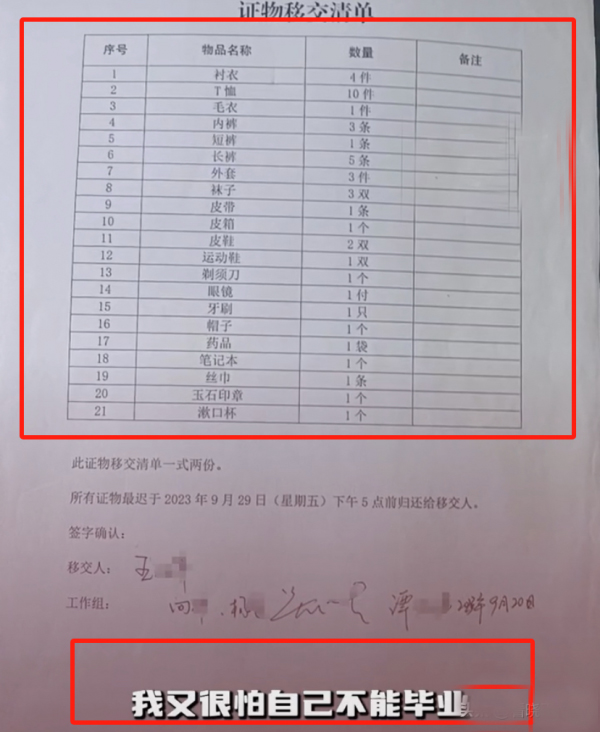 证物移交清单
序号 物品名称 数量 备注
1 衬衣 4件
2 T恤 10件
3 毛衣 1件
4 内裤 3条
5 短裤 1条
6 长裤 5条
7 外套 3件
8 袜子 3双
9 皮带 1条
10 皮箱 1个
11 皮鞋 2双
12 运动鞋 1双
13 剃须刀 1个
14 眼镜 1付
15 牙刷 1只
16 帽子 1个
17 药品 1袋
18 笔记本 1个
19 丝巾 1条
20 玉石印章 1个
21 漱口杯 1个
此证物移交清单一式两份。
所有证物最迟于2023年9月29日（星期五）下午5点前归还给移交人。
签字确认：
移交人：王
工作组： 向 杨 谭 9月20日
我又很怕自己不能毕业
头 晓